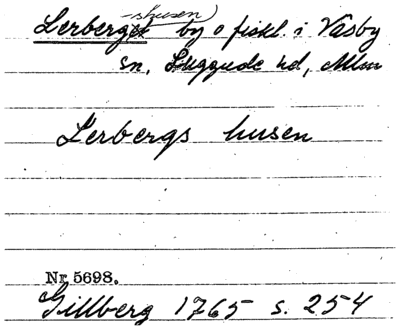 Lerberget by o fiskl. i Väsby
shusen)
sn, Luggude hd, Mlm
Lerbergs husen
Nr 5698.
Gillberg 1765 s. 254